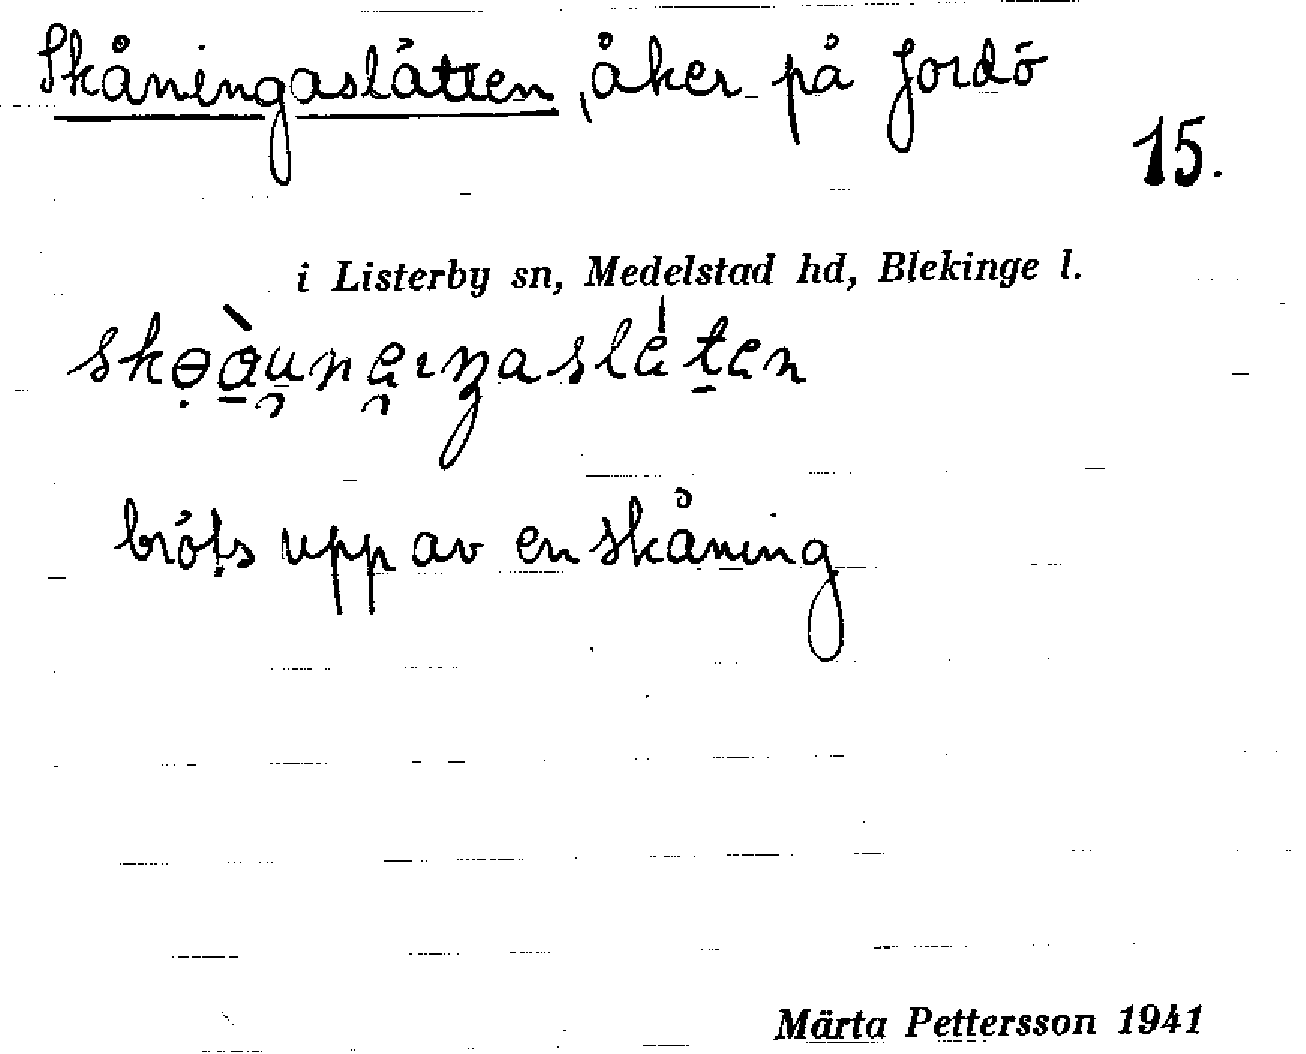 Skåningaslätten, åker på Jordö
15.
i Listerby sn, Medelstad hd, Blekinge l.
bröts upp av en skåning
Märta Pettersson 1941